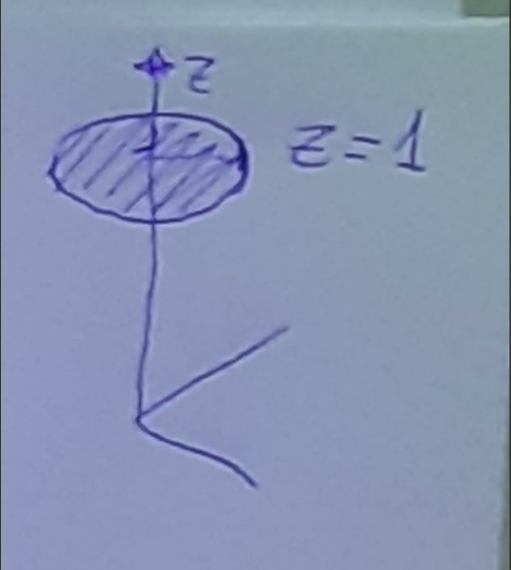 z
z=1